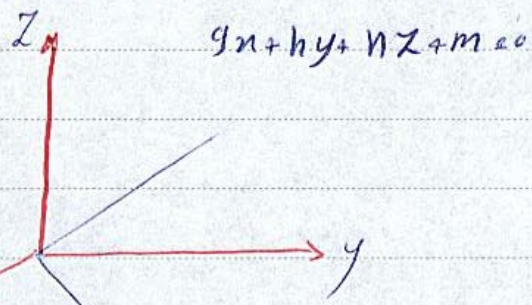 Z
gx + hy + nz + m = 0
y